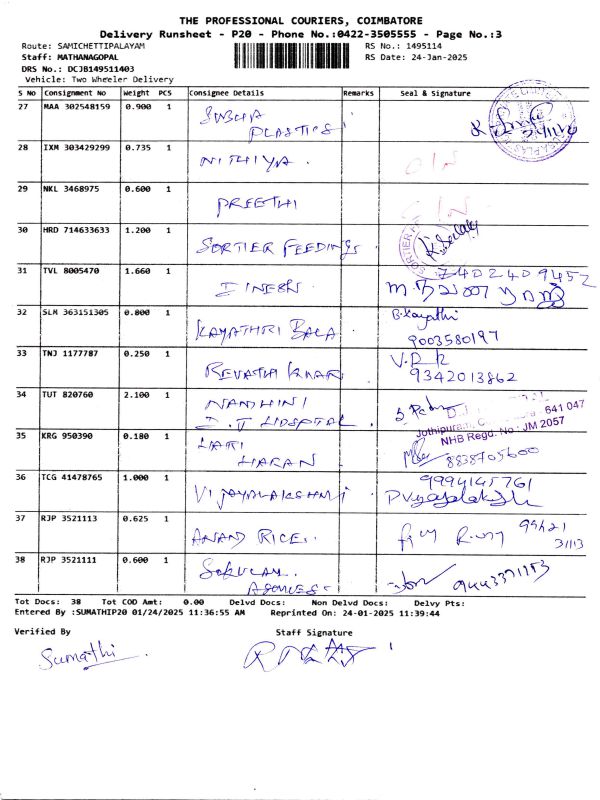 THE PROFESSIONAL COURIERS, COIMBATORE
Delivery Runsheet - P20 - Phone No.:0422-3505555 - Page No.:3
Route: SAMICHETTIPALAYAM RS No.: 1495114
Staff: MATHANAGOPAL RS Date: 24-Jan-2025
DRS No.: DCJB149511403
Vehicle: Two Wheeler Delivery
S No Consignment No Weight PCS Consignee Details Remarks Seal & Signature
27 MAA 302548159 0.900 1 SUBHA
PLASTICS
28 IXM 303429299 0.735 1 NITHIYA.
29 NKL 3468975 0.600 1 PREETHI
30 HRD 714633633 1.200 1 SORTIER FEEDINGS
31 TVL 8005470 1.660 1 DINESH 7402409452
32 SLM 363151305 0.800 1 KAYATHRI BALA B.Kayathi
9003580197
33 TNJ 1177787 0.250 1 REVATHI KUMAR V.R.K
9342013862
34 TUT 820760 2.100 1 NANDHINI
D.J HOSPTAL
641 047
NHB Regd. No: JM 2057
35 KRG 950390 0.180 1 HARI
HARAN 8838705600
36 TCG 41478765 1.000 1 VIJAYALAKSHMI 9994145761
37 RJP 3521113 0.625 1 ANAND RICE.
38 RJP 3521111 0.600 1 9443371153
Tot Docs: 38 Tot COD Amt: 0.00 Delvd Docs: Non Delvd Docs: Delvy Pts:
Entered By :SUMATHIP20 01/24/2025 11:36:55 AM Reprinted On: 24-01-2025 11:39:44
Verified By Staff Signature
Sumathi